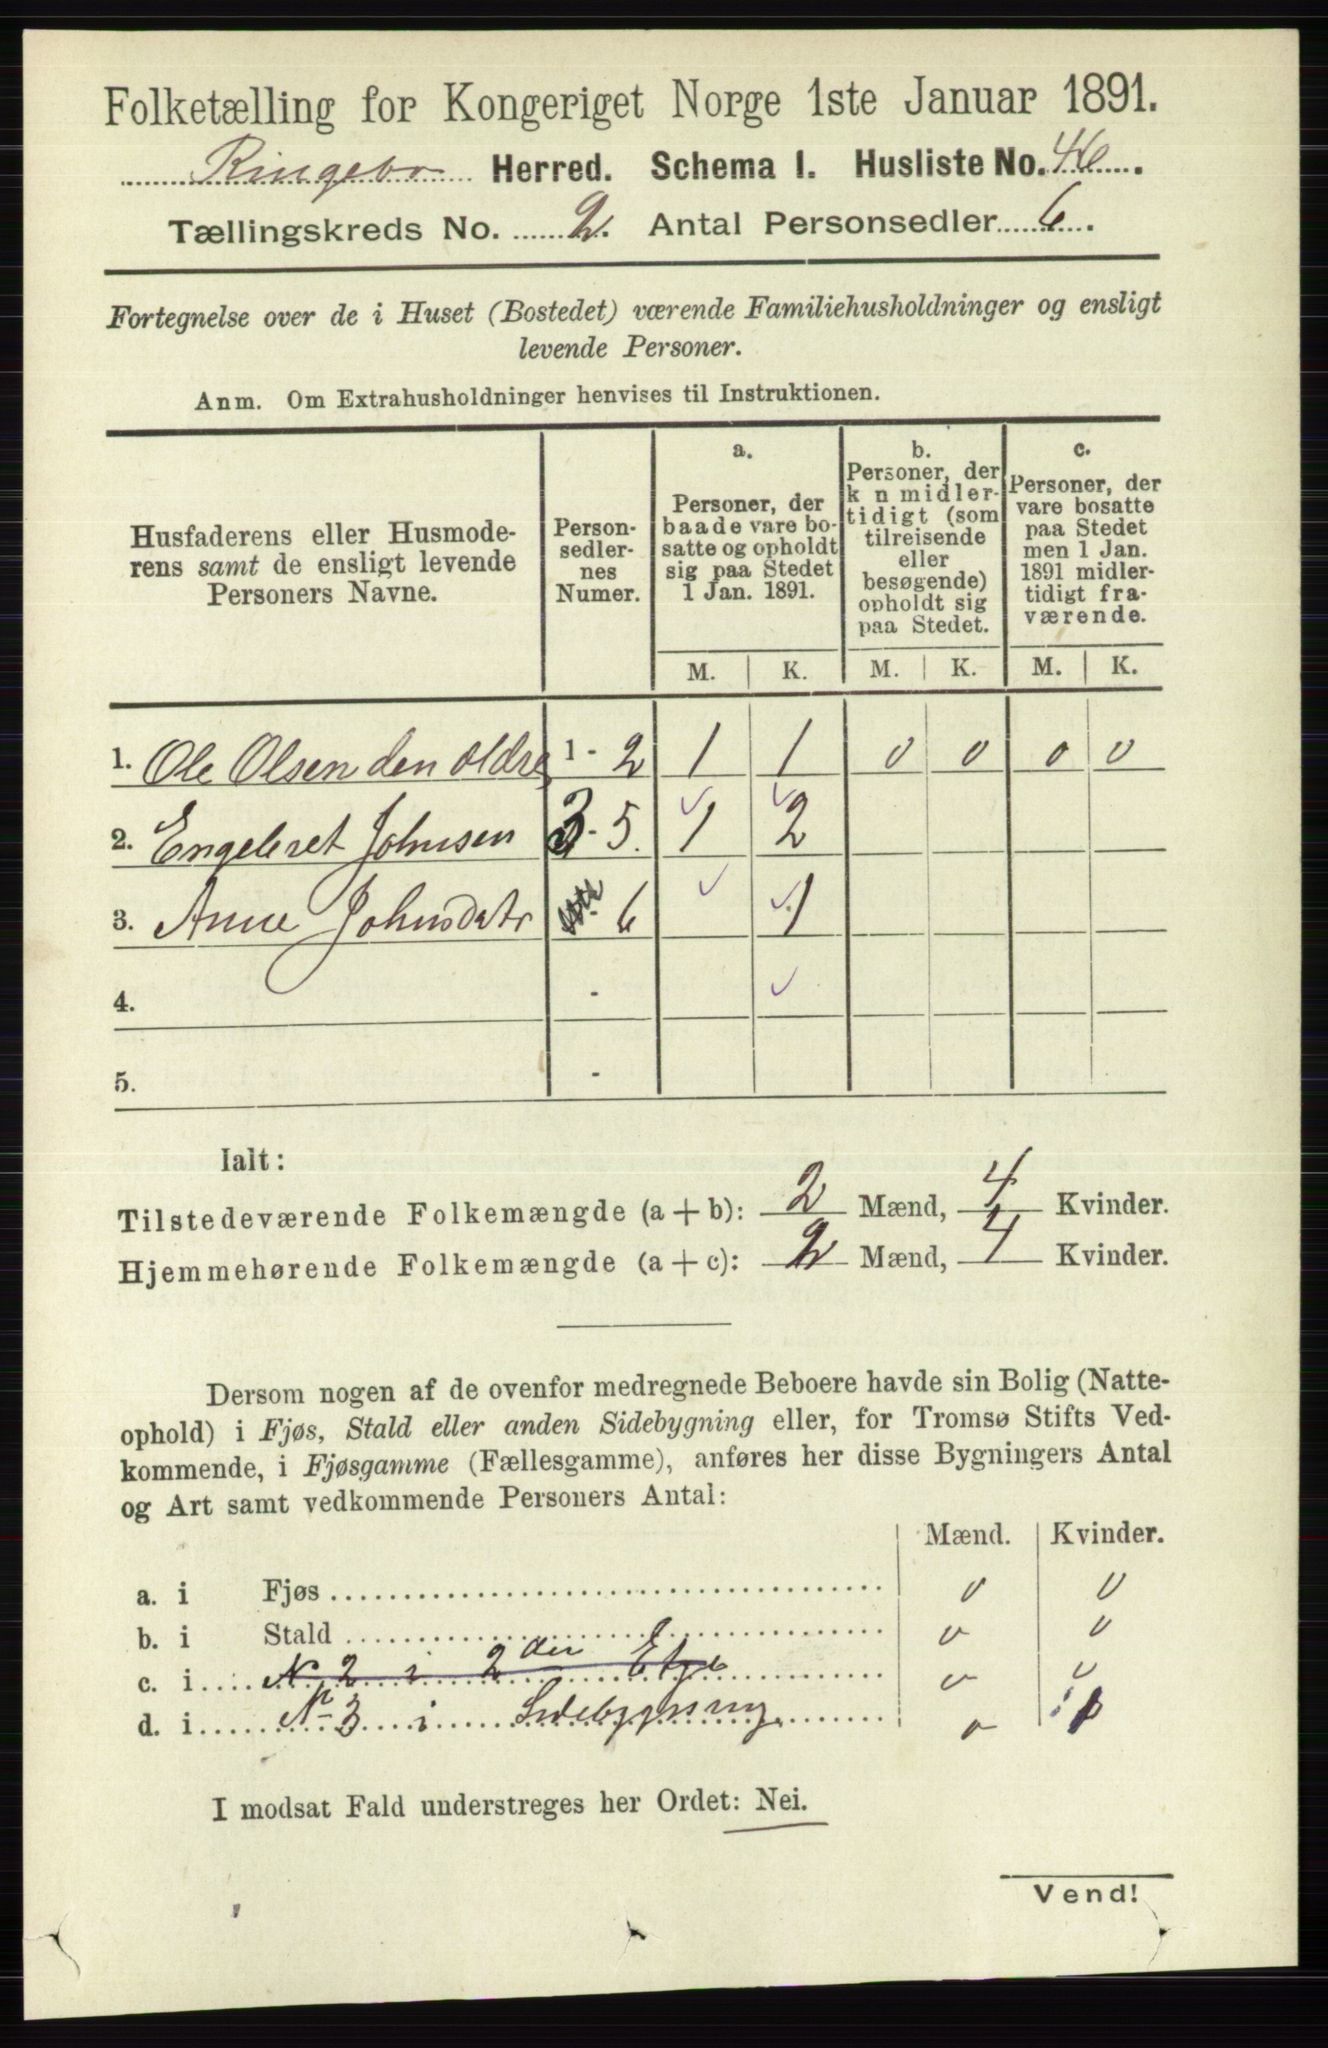 Folketælling for Kongeriget Norge 1ste Januar 1891.
Ringebo Herred. Schema I. Husliste No. 46.
Tællingskreds No. 2. Antal Personsedler 6.
Fortegnelse over de i Huset (Bostedet) værende Familiehusholdninger og ensligt
levende Personer.
Anm. Om Extrahusholdninger henvises til Instruktionen.
Husfaderens eller Husmode-
rens samt de ensligt levende
Personers Navne.
Person-
sedler-
nes
Numer.
a.
Personer, der
baade vare bo-
satte og opholdt
sig paa Stedet
1 Jan. 1891.
b.
Personer, der
k n midler-
tidigt (som
tilreisende
eller
besøgende)
opholdt sig
paa Stedet.
c.
Personer, der
vare bosatte
paa Stedet
men 1 Jan.
1891 midler-
tidigt fra-
værende.
M. K. M. K. M. K.
1. Ole Olsen den ældre 1 - 2 1 1 0 0 0 0
2. Engebret Johnsen 3 - 5. 1 2
3. Anne Johnsdatr 6 1
4. -
5. -
Ialt:
Tilstedeværende Folkemængde (a + b): 2 Mænd, 4 Kvinder.
Hjemmehørende Folkemængde (a + c): 2 Mænd, 4 Kvinder.
Dersom nogen af de ovenfor medregnede Beboere havde sin Bolig (Natte-
ophold) i Fjøs, Stald eller anden Sidebygning eller, for Tromsø Stifts Ved-
kommende, i Fjøsgamme (Fællesgamme), anføres her disse Bygningers Antal
og Art samt vedkommende Personers Antal:
Mænd. Kvinder.
a. i Fjøs 0 0
b. i Stald 0 0
c. i N 2 i 2den Etge 0 0
d. i No 3 i Sidebygning 0
I modsat Fald understreges her Ordet: Nei.
Vend!